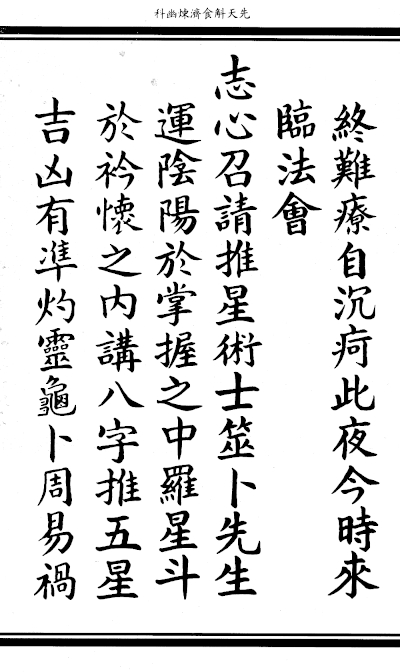 先天斛食濟煉幽科
終難療自沉疴此夜今時來
臨法會
志心召請推星術士筮卜先生
運陰陽於掌握之中羅星斗
於衿懷之內講八字推五星
吉凶有準灼靈龜卜周易禍